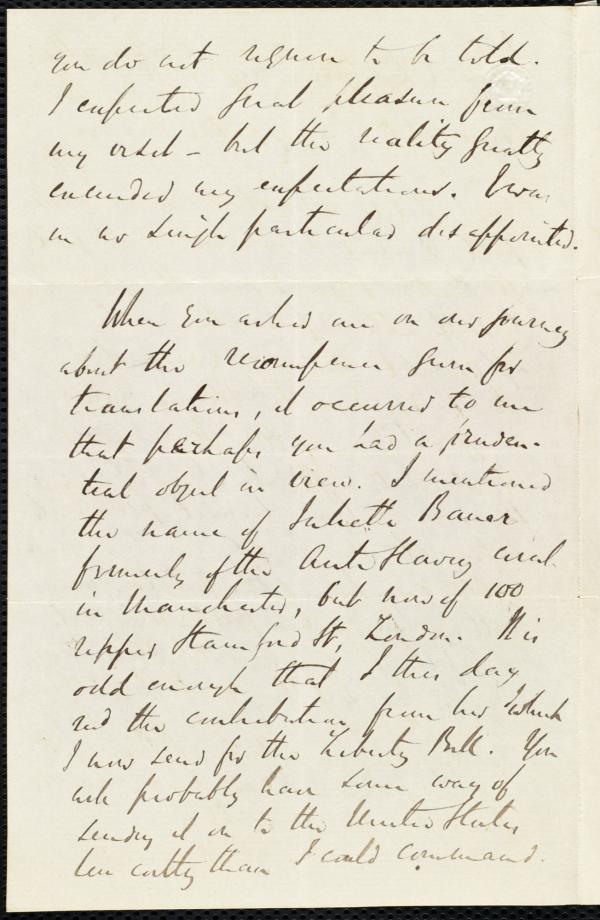 you do not require to be told.
I expected great pleasure from
my visit – but the reality greatly
exceeded my expectations. I was
in no single particular disappointed.
When you asked me on our journey
about the recompence given for
translations, it occurred to me
that perhaps you had a pruden-
tial object in view. I mentioned
the name of Juliette Bauer
formerly of the Anti Slavery circle
in Manchester, but now of 100
upper Stamford St, London. It is
odd enough that I this day
recd the contribution from her which
I now send for the Liberty Bell. You
will probably have some way of
sending it on to the United States
less costly than I could command.